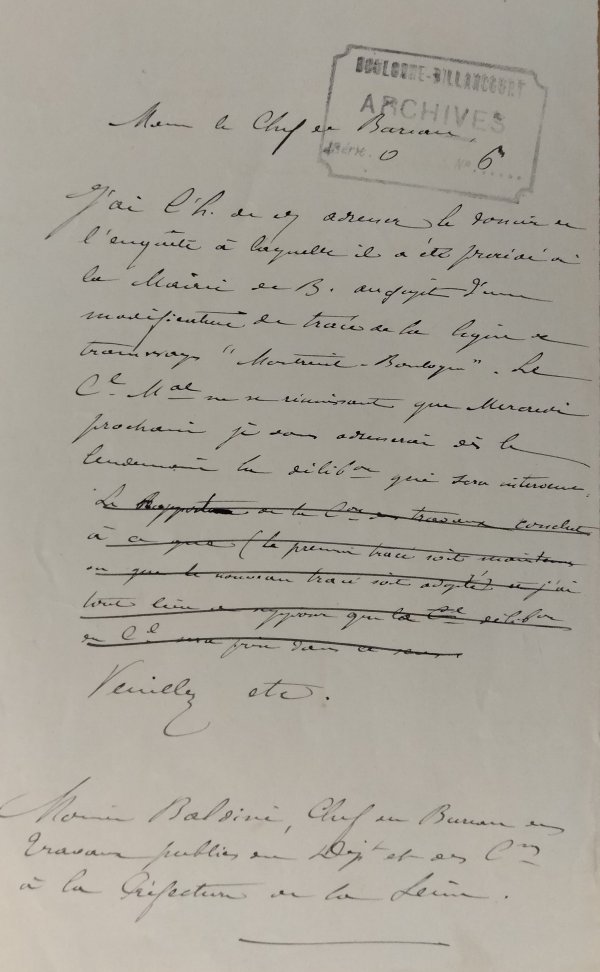 BOULOGNE-BILLANCOURT
ARCHIVES
Série. O N° 6
Mons le Chef de Bureau,
J'ai l'h. de vs adresser le dossier de
l'enquête à laquelle il a été procédé à
la Mairie de B. au sujet d'une
modification du tracé de la ligne de
tramways "Montreuil-Boulogne". Le
Cl Mal ne se réunissant que Mercredi
prochain je vous adresserai dès le
lendemain la délibon qui sera intervenue.
Le Rapport de la Con des travaux conclut
à ce que (le premier tracé soit maintenu
ou que le nouveau tracé soit adopté) et j'ai
tout lieu de supposer que la délibon
du Cl sera prise dans ce sens.
Veuillez etc.
Monsieur Baldini, Chef du Bureau des
travaux publics du Dépt et des Cnes
à la Préfecture de la Seine.